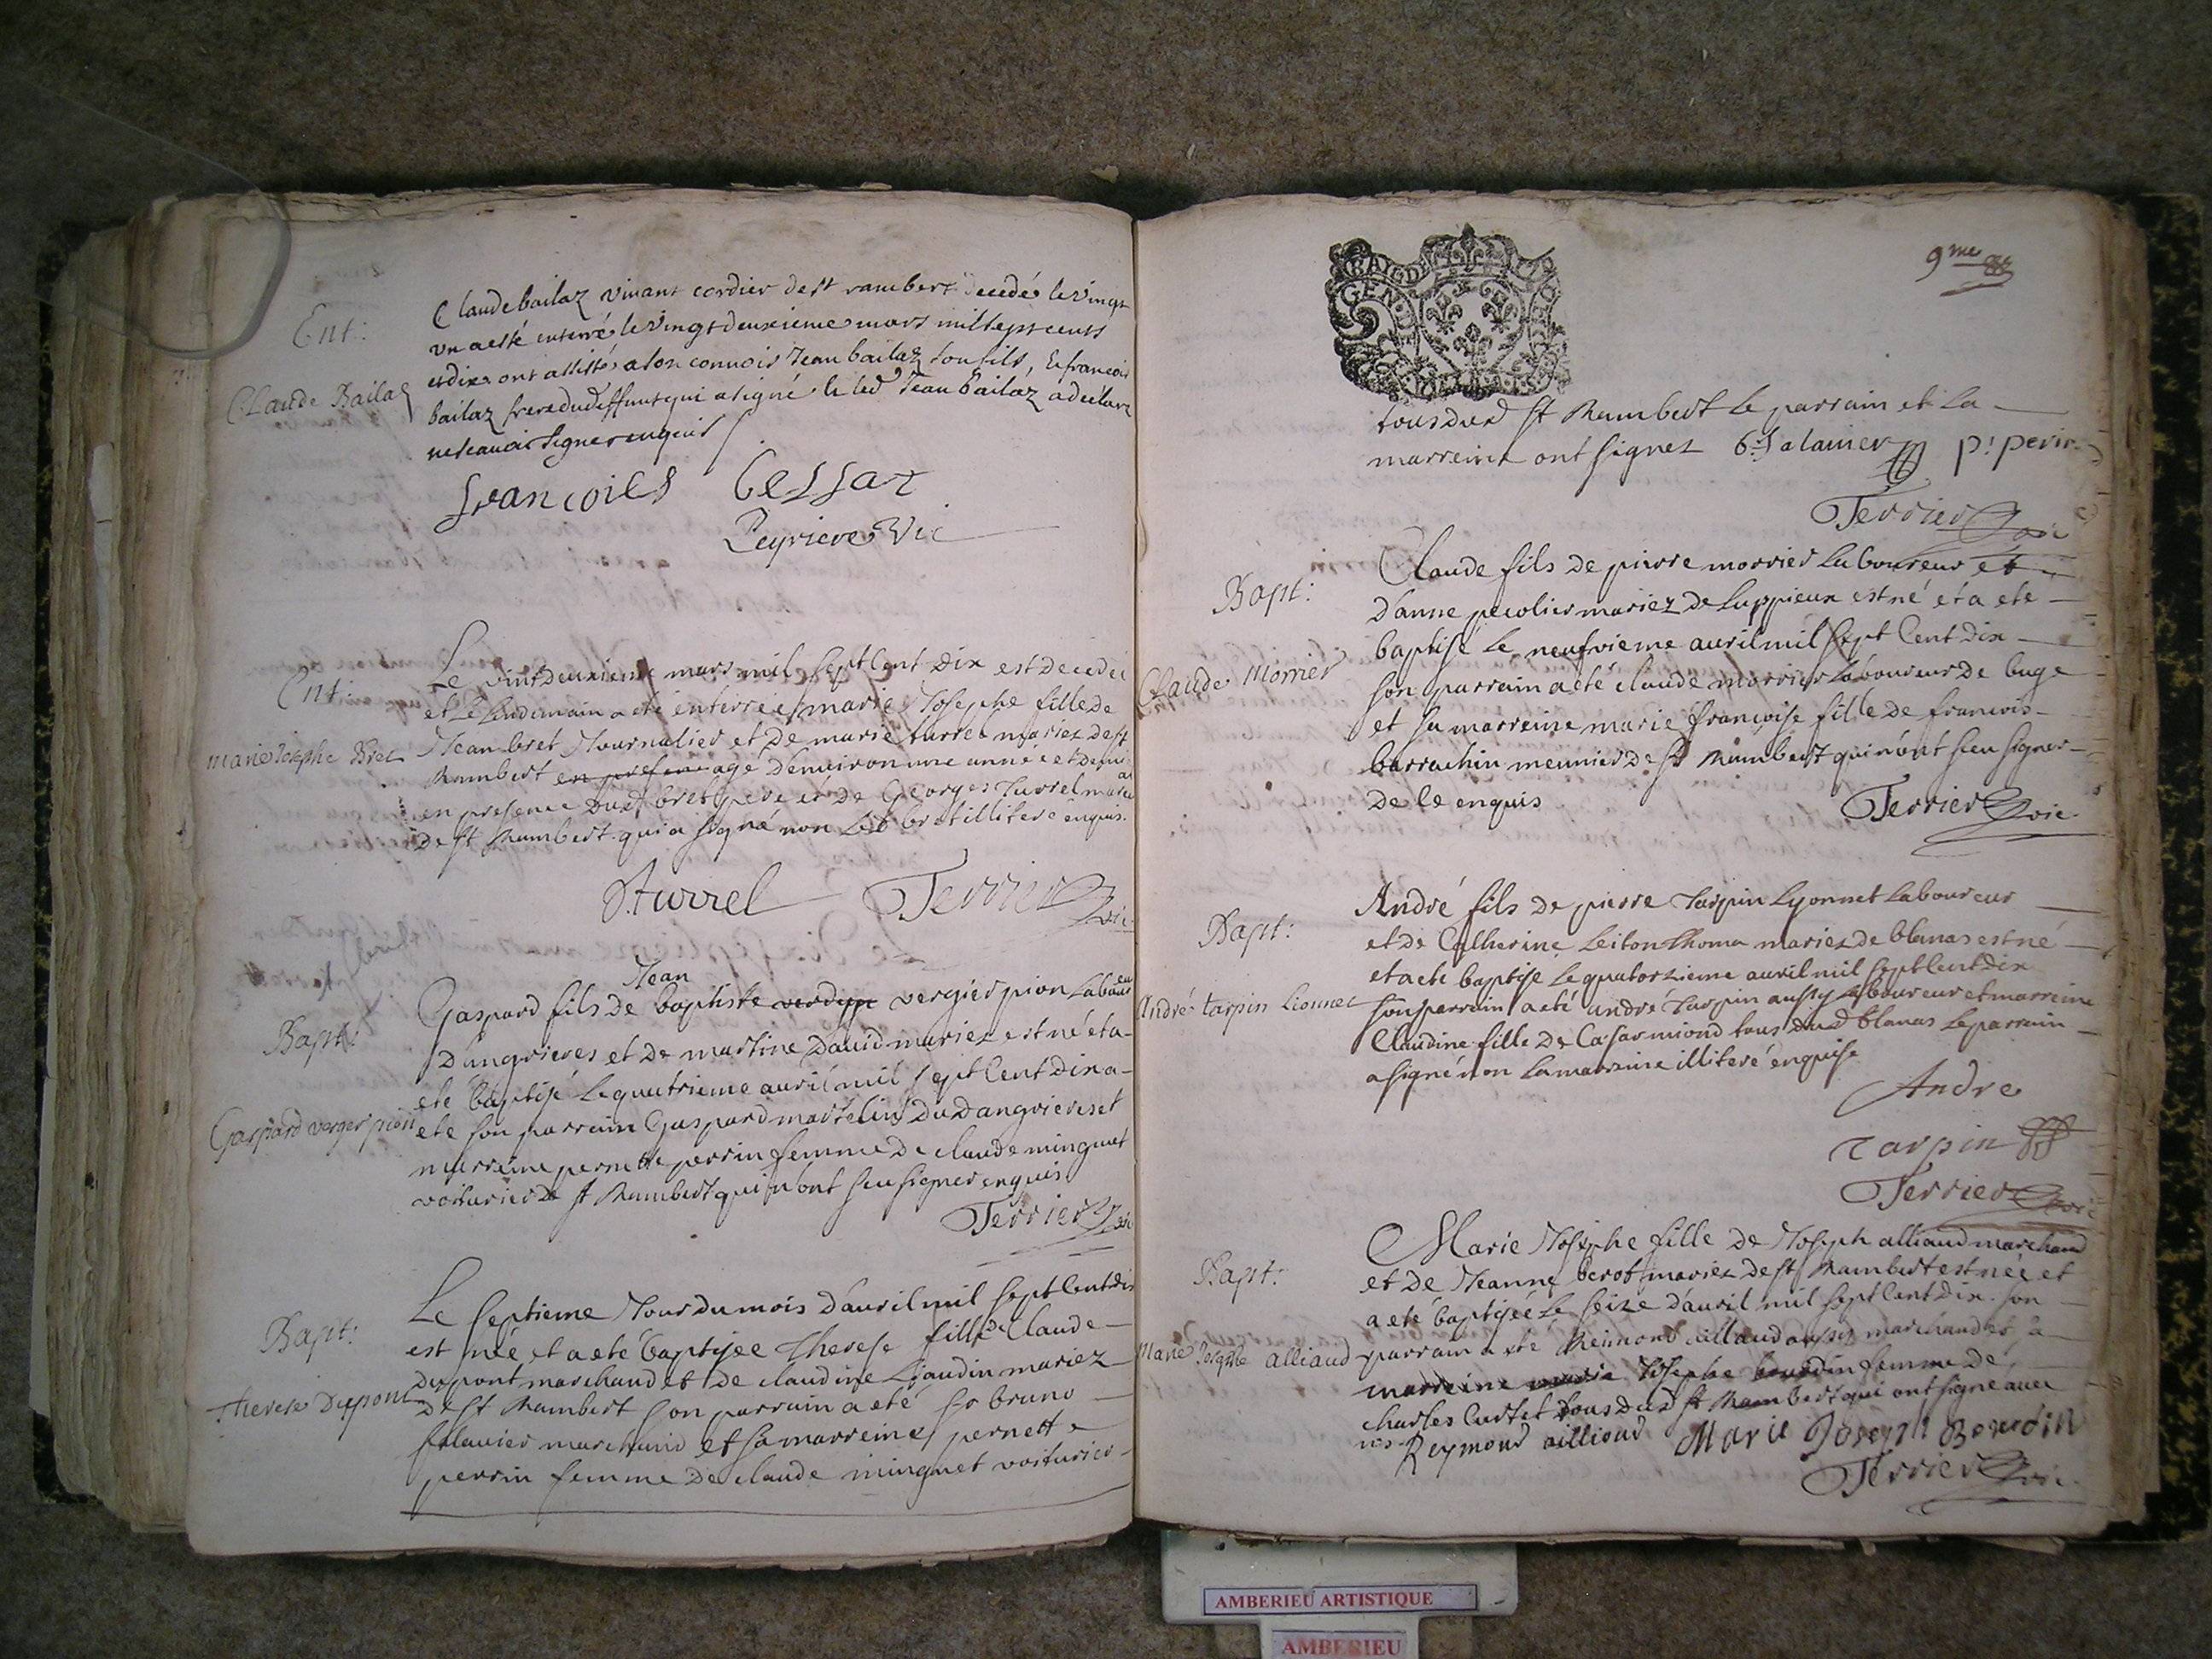 Ent:
Claude Bailaz
Claude bailaz vivant cordier de st rambert decedé le vingt
un a esté enterré le vingt deuxieme mars mil sept cents
et dix ont assistés a son convois Jean bailaz son fils, & francois
bailaz frere dud deffunt qui a signé & led Jean Bailaz a déclaré
ne scavoir signer enquis
francoies Cessat
Peyriere Vic
Ent:
marie Josephe Bret
Le vint deuxieme mars mil sept Cent dix est decedée
et le lendemain a eté enterrée marie Josephe fille de
Jean bret Journalier et de marie turrel mariez de st
Rambert en presence age d'environ une année et demi
en presence dud bret pere et de Georges Turrel
de st Rambert qui a signé non led bret illiteré enquis.
Turrel Terrier vic
Bapt:
Gaspard verger pion
Jean
Gaspard fils de baptiste vergier pion laboureur
d'angrieres et de martine david mariez est né et a
eté baptisé le quatrieme avril mil sept Cent dix a
eté son parrain Gaspard martelin dud angrieres et
marreine pernette perrin femme de claude minguet
voiturier de st Rambert qui n'ont sceu signer enquis
Terrier vic
Bapt:
Therese Dupont
Le septieme Jour du mois d'avril mil sept Cent dix
est née et a eté baptisée Therese fille de Claude
dupont marchand et de claudine Liaudin mariez
de st Rambert son parrain a eté sr bruno
salavier marchand et sa marreine pernette
perrin femme de claude minguet voiturier
9me
GEN
tous dud st Rambert le parrain et la
marreine ont signez B. Salavier p. perin
Terrier vic
Bapt:
Claude Morrier
Claude fils de pierre morrier laboureur et
d'anne pecolier mariez de Luppieux est né et a ete
baptisé le neufvieme avril mil sept Cent dix
son parrain a eté claude morrier laboureur de buge
et sa marreine marie françoise fille de francois
barrachin meunier de st Rambert qui n'ont sceu signer
de le enquis
Terrier vic
Bapt:
André tarpin Lionnet
André fils de pierre Tarpin Lyonnet laboureur
et de Catherine Leiton Thoma mariez de blanas est né
et a eté baptisé le quatorzieme avril mil sept Cent dix
son parrain a eté andré Tarpin aussy laboureur et marreine
Claudine fille de Cæsar miond tous dud blanas le parrain
a signé non la marreine illiteré enquise
Andre
Tarpin
Terrier vic
Bapt:
Marie Josephe alliaud
Marie Josephe fille de Joseph alliaud marchand
et de Jeanne berot mariez de st Rambert est née et
a eté baptisée le seize d'avril mil sept Cent dix son
parrain a eté Reimond alliaud aussy marchand et sa
marreine marie Josephe bourdin femme de
charles Curtet tous dud st Rambert qui ont signé avec
nous Reymond aillioud Marie Joseph Bourdin
Terrier vic
AMBERIEU ARTISTIQUE
AMBERIEU